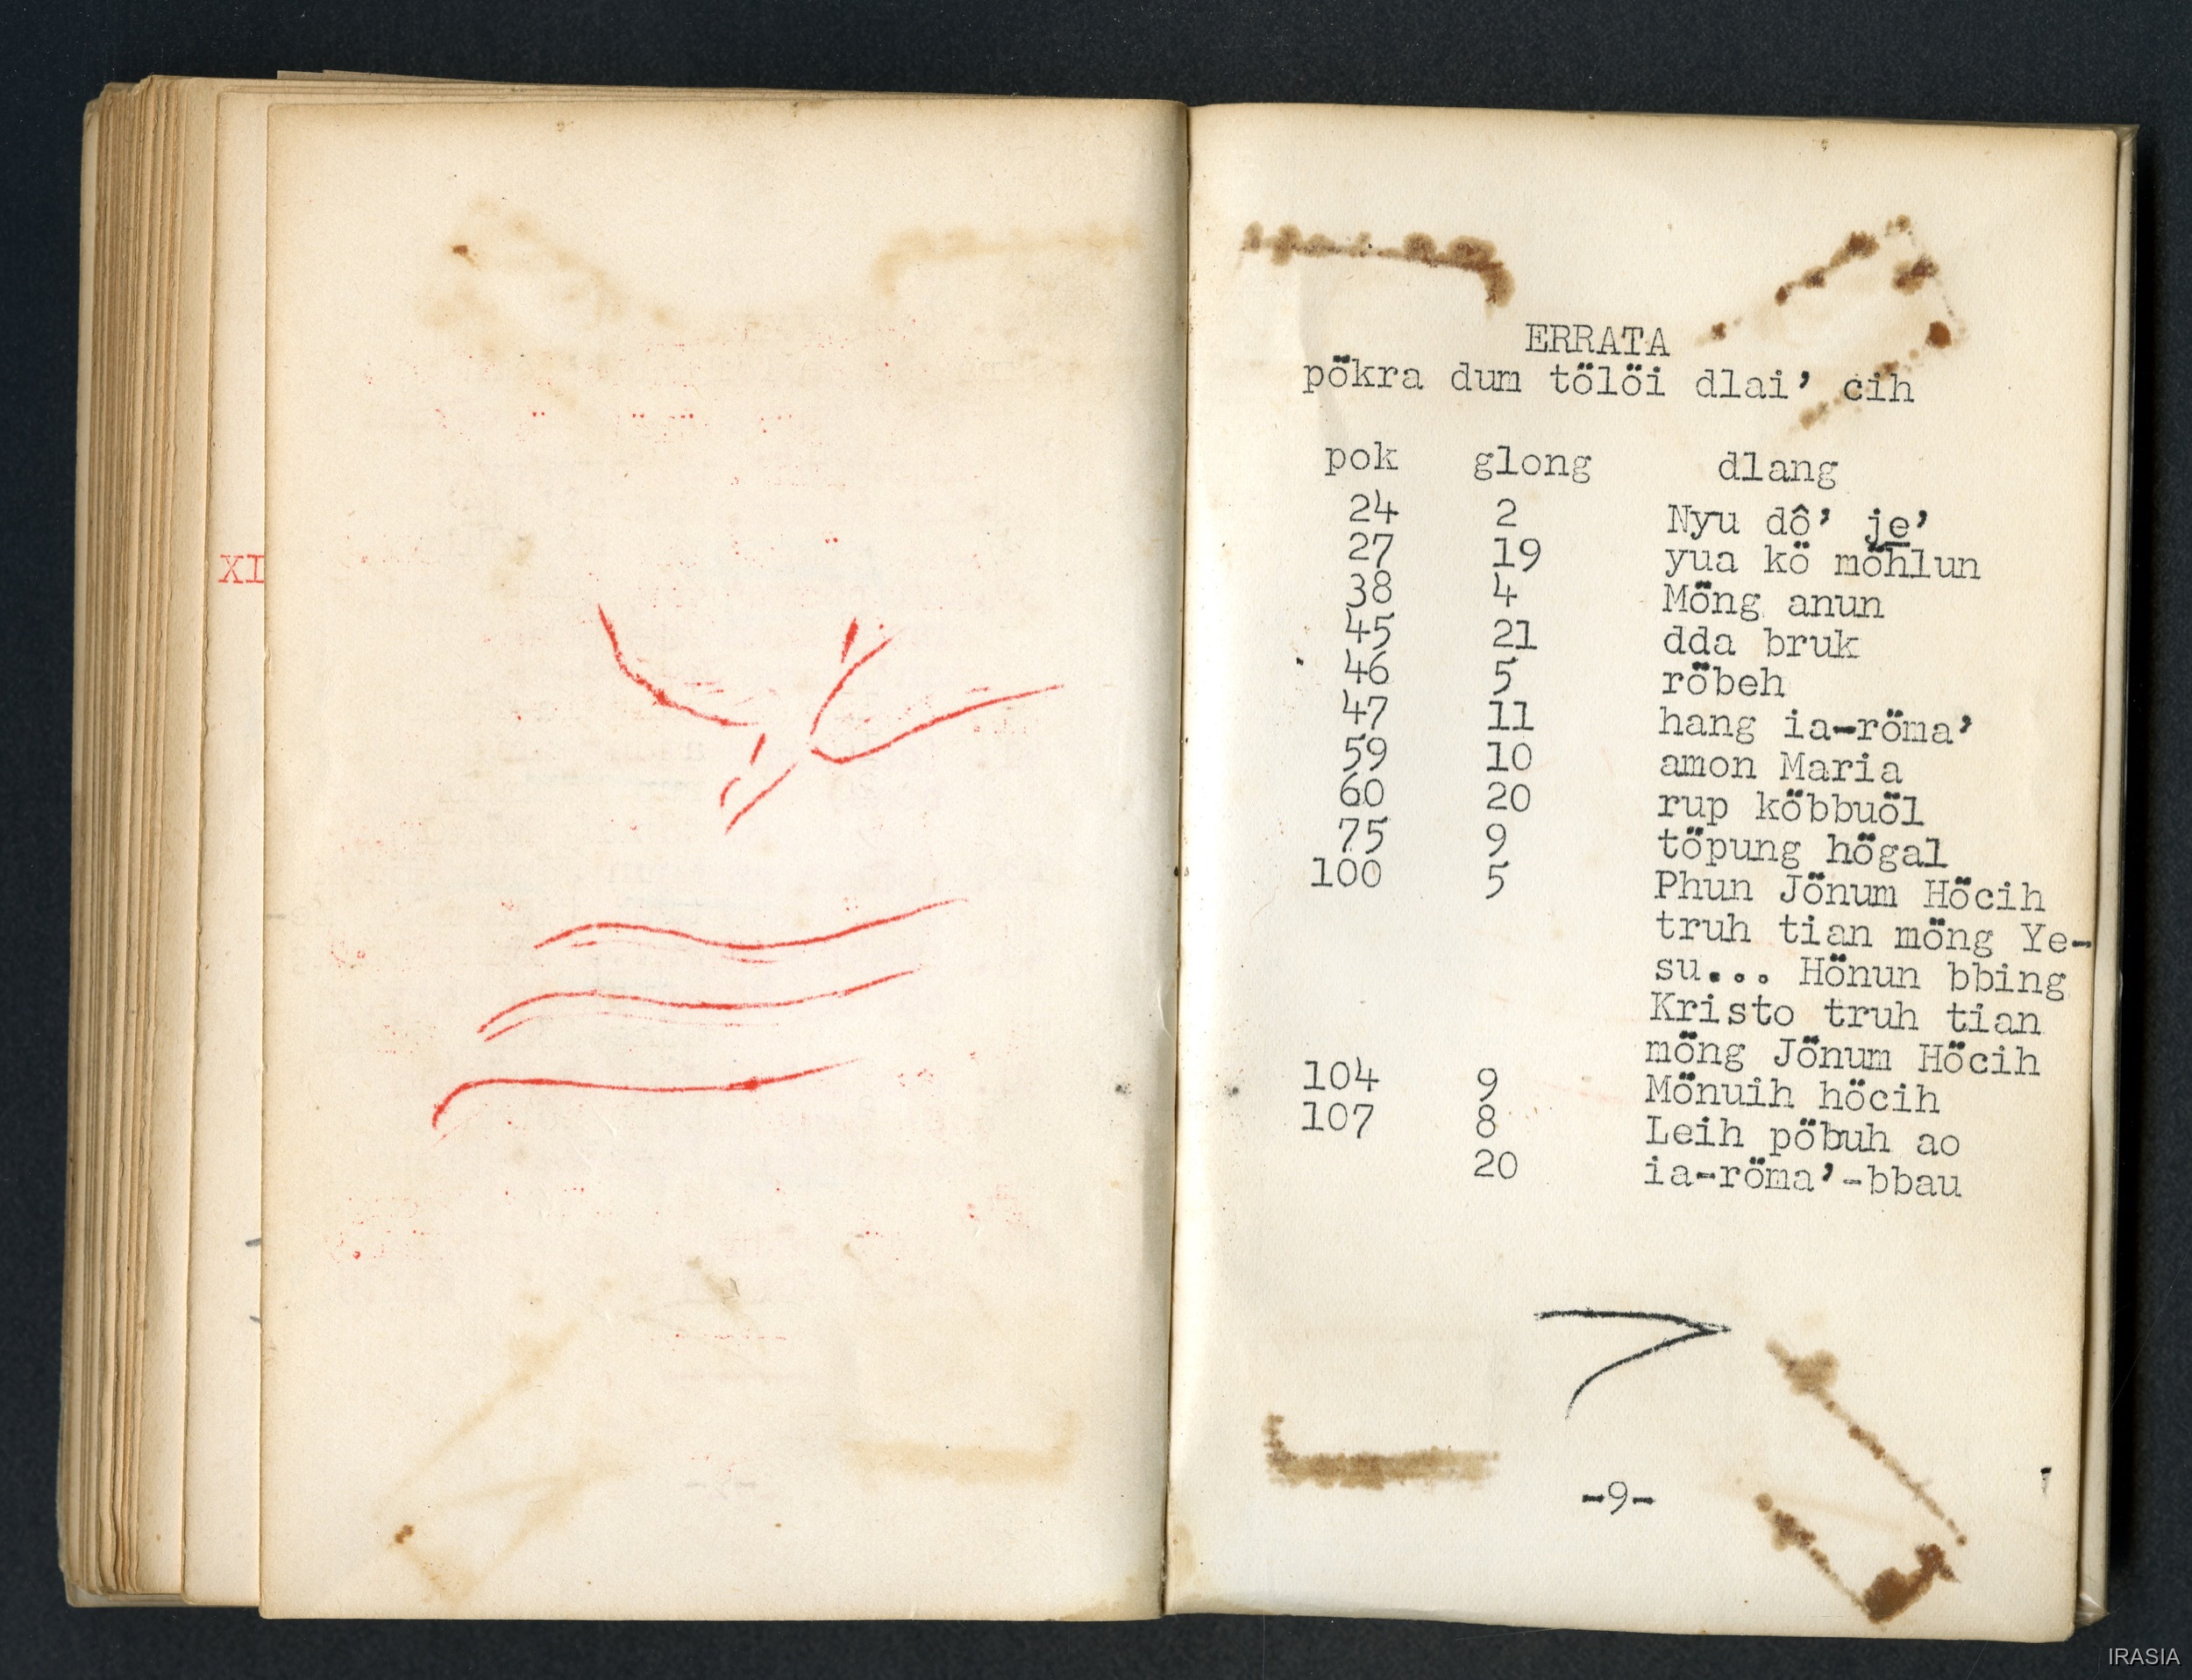 XI
ERRATA
pökra dum tölöi dlai’ cih
pok glong dlang
24 2 Nyu dô’ je’
27 19 yua kö möhlun
38 4 Möng anun
45 21 dda bruk
46 5 röbeh
47 11 hang ia-röma’
59 10 amon Maria
60 20 rup köbbuöl
75 9 töpung högal
100 5 Phun Jönum Höcih
truh tian möng Ye-
su... Hönun bbing
Kristo truh tian
möng Jönum Höcih
104 9 Mönuih höcih
107 8 Leih pöbuh ao
20 ia-röma’-bbau
-9-
IRASIA